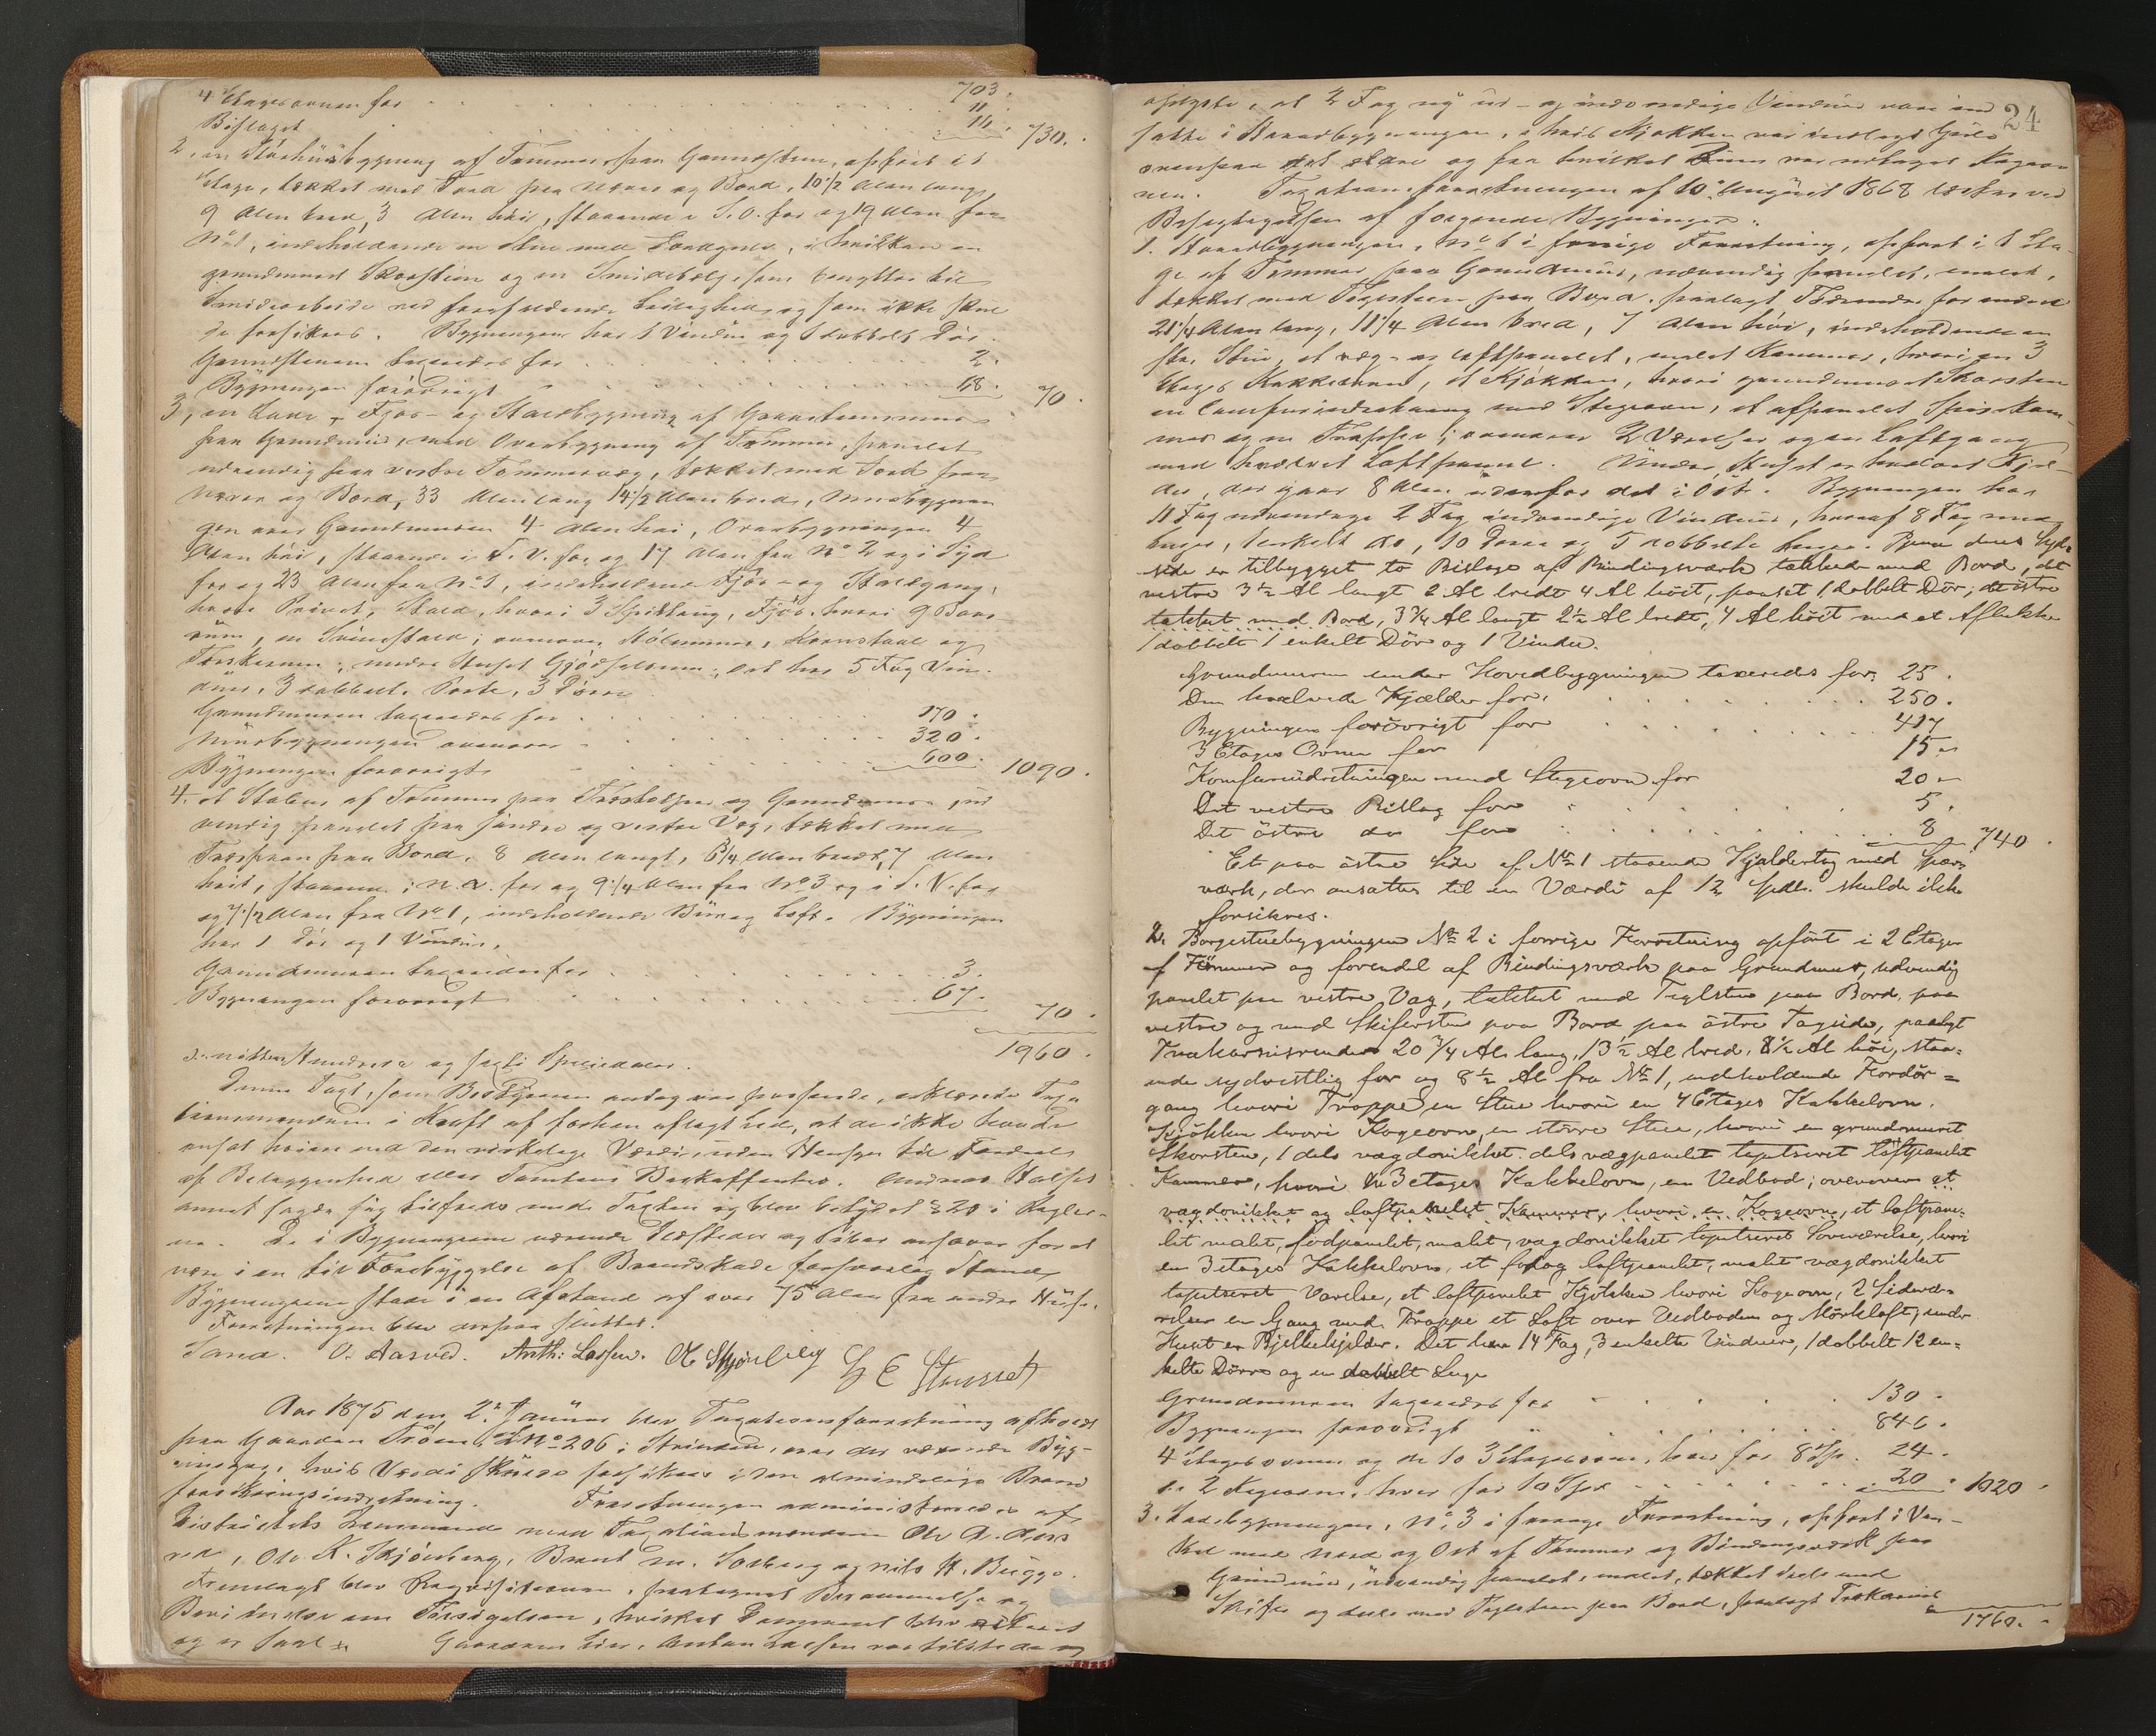 4 Etagesovnen for . . . 703.
11.
Bislaget . . . 16. 730.
2, en Stuehüsbygning af Tømmer paa Grundsteen, opført i 1
Etage, tækket med Torv paa Næver og Bord, 10 1/2 Alen lang,
9 Alen bred, 3 Alen høi, staaende i S.O. for og 19 Alen fra
No 1, indeholdende en Stue med Jordgulv, i hvilken en
grundmuret Skorsteen og en Smidebælg, som benyttes til
Smidearbeide ved forefaldende Leilighed, og som ikke skul
de forsikres. Bygningen har 1 Vindue og 1 dobbelt Dør.
Grundstenene taxeredes for . . . 2.
Bygningen forøvrigt . . . 68. 70.
3, en Lade-, Fjøs- og Staldbygning af
paa Grundmur, med Overbygning af Tømmer, panelet
udvendig paa vestre Tømmervæg, tækket med Torv paa
Næver og Bord, 33 Alen lang 14 1/2 Alen bred, Muurbygnin
gen over Grundmuren 4 Alen høi, Overbygningen 4
Alen høi, staaende i S.V. for og 17 Alen fra No 2 og i Syd
for og 23 Alen fra No 1, indeholdende Fjøs- og Staldgang,
Privet, Stald, hvori 3 Spiltaug, Fjøs, hvori 9 Baas
rüm, en Svinestald; ovenover, Kornstaal og
Tærskerum; under Huset Gjødselrum; det har 5 Fag Vin-
duer, 3 dobbelt. Porte, 3 Døre
Grundmuren taxeredes for . . . 170.
Mürbygningen ovenover . . . 320.
Bygningen forøvrigt . . . 600. 1090.
4. et Stabur af Tømmer paa Træstolper og Grundmur, ud
vendig panelet paa søndre og vestre Væg, tækket med
Træspaan paa Bord, 8 Alen langt, 6 3/4 Alen bredt, 7 Alen
høit, staaende i N.V. for og 9 1/4 Alen fra No 3 og i S.V. for
og 7 1/2 Alen fra No 1, indeholdende Bür og Loft. Bygningen
har 1 Dør og 1 Vindue.
Grundmuren taxeredes for . . . 3.
Bygningen forøvrigt . . . 67.
70.
1960.
nitten Hundrede og sexti Speciedaler.
Denne Taxt, som Bestyreren ansaa for passende, erklærede Taxa
tionsmændene i Kraft af forhen aflagt Eed, at de ikke havde
ansat høiere end den virkelige Værdi, uden Hensyn til Fordeel
af Beliggenhed eller Tomtens Beskaffenhed.
sagde sig tilfreds med Taxten og blev betydet § 20 i Regler-
ne. De i Bygningerne værende Ildsteder og Piber ansaaes for at
være i en til Forebyggelse af Brandskade forsvarlig Stand.
Bygningerne staae i en Afstand af over 75 Alen fra andre Hüse.
Forretningen blev derpaa sluttet.
Sand. O. Aasved. Anth: Lassen. O K Skjønberg
Aar 1875 den 2den Januar blev Taxationsforretning afholdt
paa Gaarden LNo 206 i Strinden, over der værende Byg-
ninger, hvis Værdi skulde forsikres i den almindelige Brand
forsikringsindretning. Forretningen administreredes af
Districtets Lensmand med Taxationsmændene Ole A. Aas
ved, Ole K. Skjønberg, Bernt M. Solberg og Nils H. Bügge.
Fremlagt blev Requisitionen, paategnet Berammelse og
Bevidnelse om Tilsigelsen, hvilket Document blev
og er saal. Gaardens Eier, Anton Lassen var tilstede og
24
oplyste, at 2 Fag ny ud- og indvendige Vinduer vare ind
satte i Hovedbygningen, i hvis Kjøkken var indlagt Gulv
ovenpaa det ældre og fra hvilket Rum var udtaget Kogeov
nen. Taxationsforretningen af 10 August 1868 læstes ved
Besigtigelsen af følgende Bygninger:
1. Hovedbygningen, No 1 i forrige Forretning, opført i 1 Eta-
ge af Tømmer paa Grundmur, udvendig panelet, malet,
tækket med Teglsteen paa Bord, paalagt Tagrender for enden
21 1/4 Alen lang, 11 1/4 Alen bred, 7 Alen høi, indeholdende en
stor Stue, et væg- og loftpanelet, malet Kammer, hvori en 3
Etages Kakkelovn, et Kjøkken, hvori grundmuret Skorsten
en Comfurindretning med Stegeovn, et afpanelet Spiskam
mer og en Trappe; ovenover 2 Værelser og en Loftgang
med høvlet Loftpanel. Under Huset er hvælvet Kjæl-
der, der gaar 8 Alen udenfor det i Øst. Bygningen har
11 Fag udvendige 2 Fag indvendige Vinduer, hvoraf 8 Fag med
1 enkelt do, 10 Døre og 5 dobbelte. Paa dens Syd-
side er tilbygget to Bislage af Bindingsværk tækkede med Bord, det
vestre 3 1/2 Al langt 2 Al bredt 4 Al høit, paasat 1 dobbelt Dör, det östre
tækket med Bord, 3 3/4 Al langt 2 1/2 Al bredt, 4 Al höit med et Aflukke
1 dobbelt 1 enkelt Dör og 1 Vindu.
Grundmuren under Hovedbygningen taxeredes for 25.
Den hvælvede Kjælder for . . . 250.
Bygningen forövrigt for . . . 417
3 Etages Ovnen for . . . 15 „
Komfurindretningen med Stegeovn for 20 „
Det vestre Bislag for . . . 5.
Det östre do for . . . 8 740.
Et paa östre Side af No 1 staaende Kjældertag med Spær
værk, der ansattes til en Værdi af 12 Spdlr. skulde ikke
forsikres.
2. Borgestuebygningen No 2 i forrige Forretning opfört i 2 Etager
af Tömmer og forendel af Bindingsværk paa Grundmur, udvendig
panelet paa vestre Væg, tækket med Teglsten paa Bord, paa
vestre og med Skifersten paa Bord paa östre Tagside, paalagt
Trækarnisrender 20 3/4 Al lang, 13 1/2 Al bred, 8 1/2 Al höi, staa=
ende sydvestlig for og 8 1/2 Al fra No 1, indeholdende Fordör=
gang hvori Trappe, en Stue hvori en 4 Etages Kakkelovn.
Kjökken hvori Kogeovn, en större Stue, hvori en grundmuret
Skorsten, 1 dels vægdonikket dels vægpanelt tapetseret loftpanelt
Kammer, hvori en 3 etages Kakkelovn, en Vedbod; ovenover et
vægdonikket og loftpanelet Kammer, hvori en Kogeovn, et loftpane-
let malet, fodpanelet, malet, vægdonikket tapetseret Soveværelse, hvori
en 3 etages Kakkelovn, et fod og loftpanelt, malet vægdonikket
tapetseret Værelse, et loftpanelet Kjökken hvori Kogeovn, 2 Sidevæ-
relser en Gang med Trappe et Loft over Vedboden og Mörkloft; under
Huset er Bjelkekjelder. Det har 14 Fag, 3 enkelte Vinduer, 1 dobbelt 12 en=
kelte Dörre og en dobbelt Luge
Grundmuren taxeredes for . . . 130.
Bygningen forøvrigt . . . 846.
4 Etagesovnen og de to 3 Etagesovne, hver for 8 Sp. 24.
de 2 Kogeovne, hver for 10 Spd . . . 20. 1020.
3. Ladebygningen, No 3 i forrige Forretning, opført i Vin-
kel med Nord og Øst af Tømmer og Bindingsværk paa
Grundmur, udvendig panelet, malet, tækket deels med
Skifer og deels med Teglsteen paa Bord, paalagt Trækarnis
1760.